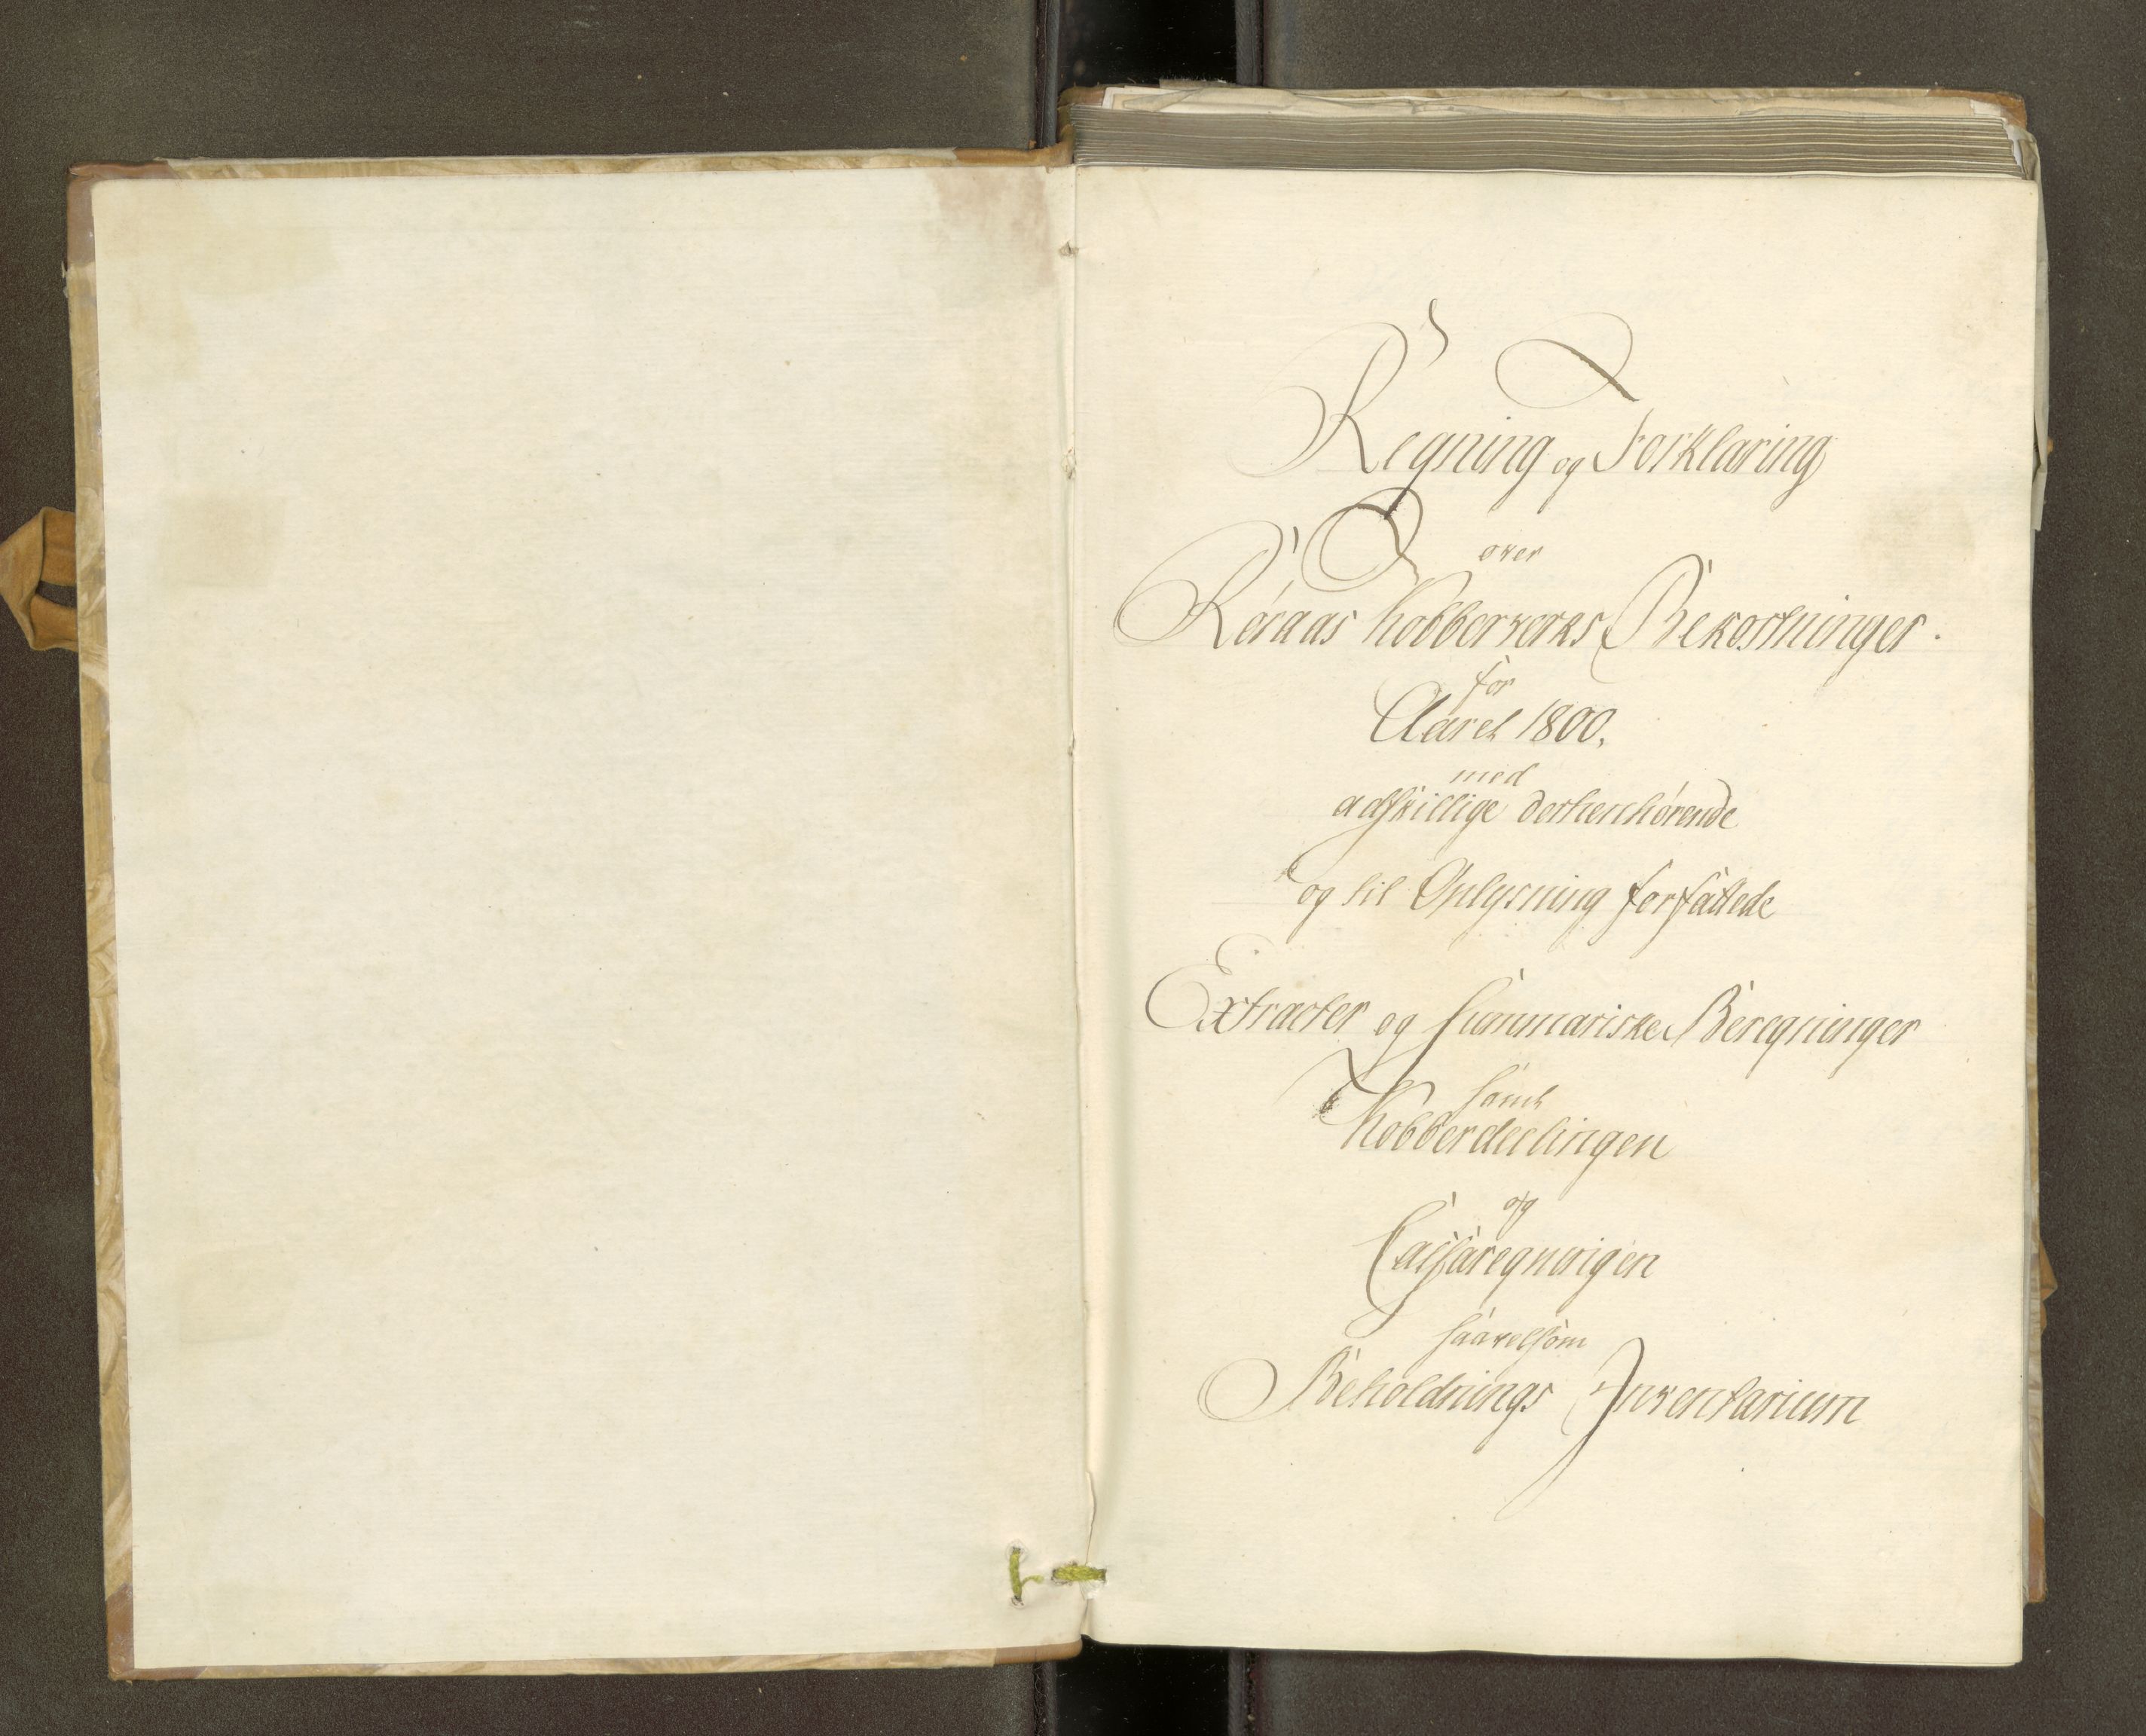 Regning og Forklaring
over
Røraas Kobberverks Bekostninger.
for
Aaret 1800.
med
adskillige derhenhørende
og til Oplysning forfattede
Extracter og Summariske Beregninger
samt
Kobberdeelingen
og
Cassaregningen
saavelsom
Beholdnings Inventarium